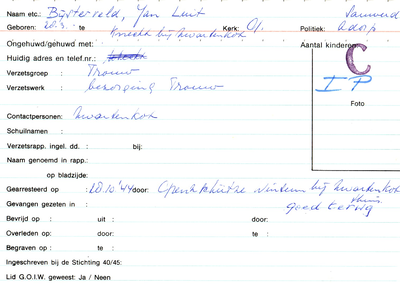 Naam etc.: Bijsterveld, Jan Luit
Geboren: 20.3. te Kerk: Politiek:
knecht bij Zwartenkot
Ongehuwd/gehuwd met: Aantal kinderen
Huidig adres en telef.nr.:
C
Verzetsgroep : Trouw
I P
Verzetswerk : bezorging Trouw
Foto
Contactpersonen: Zwartenkot
Schuilnaam :
Verzetsrapp. ingel. dd. : bij:
Naam genoemd in rapp.:
op bladzijde:
Gearresteerd op :20.10'44 door: bij Zwartenkot
Gevangen gezeten in : thuis
goed
Bevrijd op : uit : door:
Overleden op: door: te :
Begraven op : te :
Ingeschreven bij de Stichting 40/45:
Lid G.O.I.W. geweest: Ja / Neen